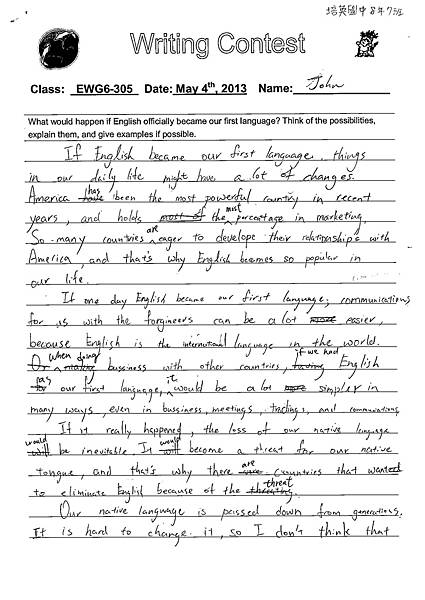 培英國中8年7班
Writing Contest
Class: EWG6-305 Date: May 4th, 2013 Name: John
What would happen if English officially became our first language? Think of the possibilities,
explain them, and give examples if possible.
If English became our first language, things
in our daily life might have a lot of changes.
America has been the most powerful country in recent
years, and holds the most percentage in marketing.
So many countries are eager to develope their relationships with
America, and that's why English becomes so popular in
our life.
If one day English became our first language, communications
for us with the forgineers can be a lot easier,
because English is the international language in the world.
When doing bussiness with other countries, if we had English
our first language, it would be a lot simpler in
many ways, even in bussiness, meetings, tradings, and communications.
If it really happened, the loss of our native language
would be inevitable. It would become a threat for our native
tongue, and that's why there are countries that wanted
to eliminate English because of the threat.
Our native language is passed down from generations.
It is hard to change it, so I don't think that